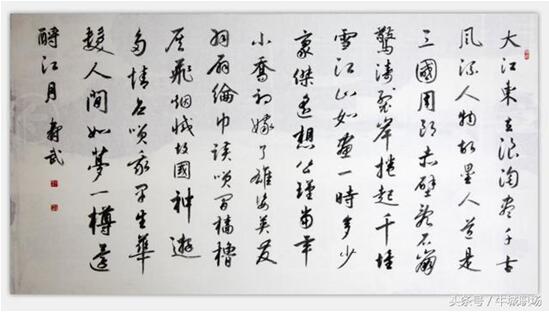 大江東去浪淘盡千古
風流人物故壘人道是
三國周郎赤壁亂石崩
驚濤裂岸捲起千堆
雪江山如畫一時多少
豪傑遙想公瑾當年
小喬初嫁了雄姿英發
羽扇綸巾談笑間檣櫓
灰飛烟滅故國神遊
多情應笑我早生華
髮人間如夢一樽還
酹江月 壽武
头条号 / 牛城职场